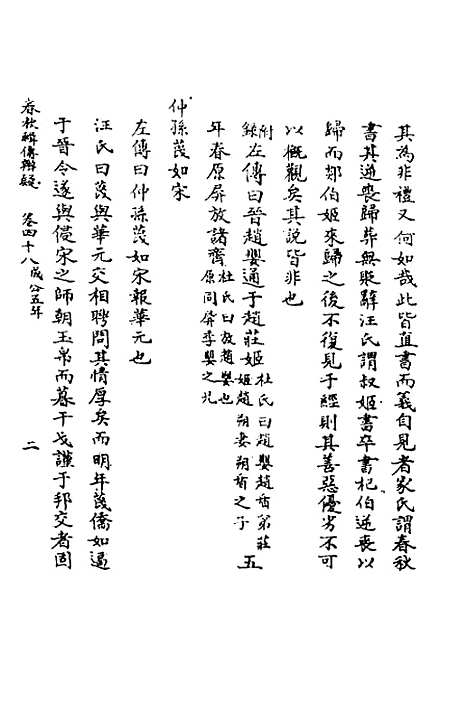 其為非禮又何如哉此皆直書而義自見者家氏謂春秋
書其逆喪歸葬無貶辭汪氏謂叔姬書卒書杞伯逆喪以
歸而郯伯姬來歸之後不復見于經則其善惡優劣不可
以槪觀矣其說皆非也
附錄左傳曰晉趙嬰通于趙莊姬杜氏曰趙嬰趙盾弟莊姬趙朔妻朔盾之子五
年春原屏放諸齊杜氏曰放趙嬰也原同屏季嬰之兄
仲孫蔑如宋
左傳曰仲孫蔑如宋報華元也
汪氏曰蔑與華元交相聘問其情厚矣而明年蔑僑如逼
于晉令遂與侵宋之師朝玉帛而暮干戈謹于邦交者固
春秋輯傳辨疑 卷四十八成公五年 二